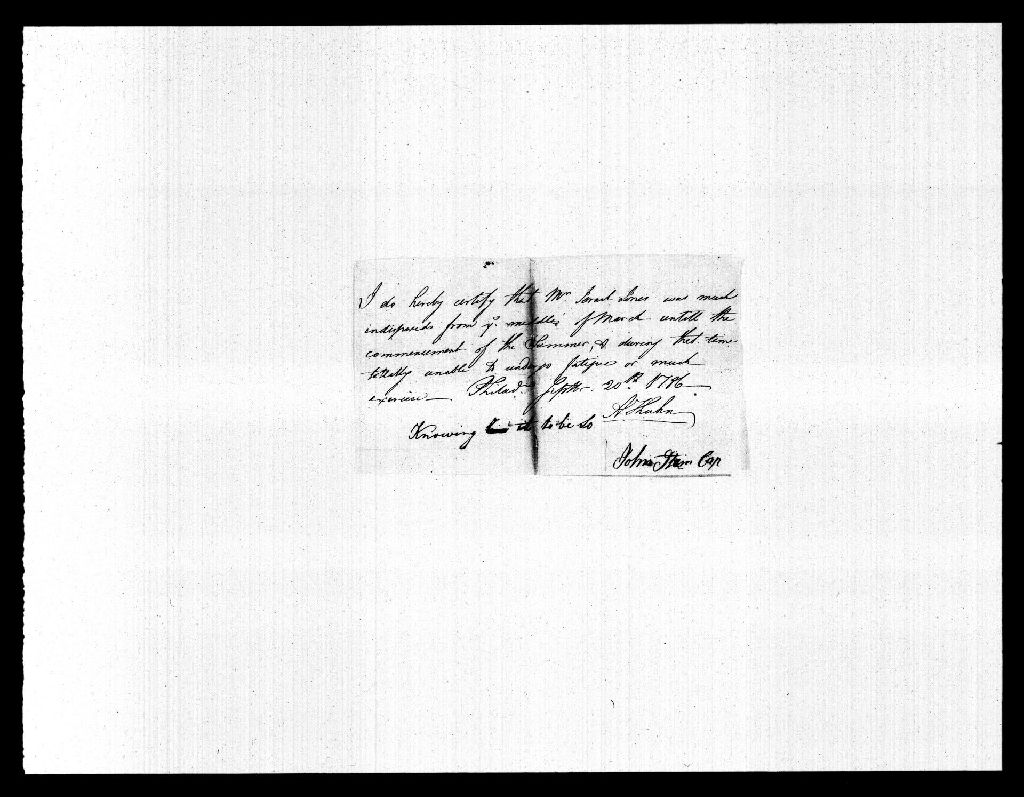 I do hereby certify that Mr. Israel Jones was much
indisposed from ye. middle of March untill the
commencement of the Summer, & during that time
totally unable to undergo fatigue or much
exercise — Philad. Septr. 20th 1786 —
A Kuhn
Knowing it to be So
John Cap